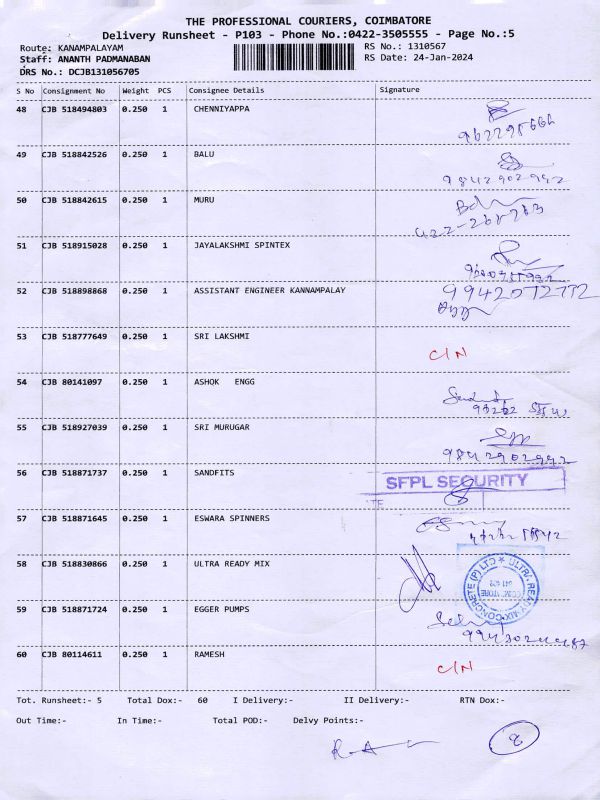 THE PROFESSIONAL COURIERS, COIMBATORE
Delivery Runsheet - P103 - Phone No.:0422-3505555 - Page No.:5
Route: KANAMPALAYAM
RS No.: 1310567
Staff: ANANTH PADMANABAN
RS Date: 24-Jan-2024
DRS No.: DCJB131056705
S No Consignment No Weight PCS Consignee Details Signature
48 CJB 518494803 0.250 1 CHENNIYAPPA
49 CJB 518842526 0.250 1 BALU
9842902992
50 CJB 518842615 0.250 1 MURU
51 CJB 518915028 0.250 1 JAYALAKSHMI SPINTEX
52 CJB 518898868 0.250 1 ASSISTANT ENGINEER KANNAMPALAY
53 CJB 518777649 0.250 1 SRI LAKSHMI
C/N
54 CJB 80141097 0.250 1 ASHOK ENGG
55 CJB 518927039 0.250 1 SRI MURUGAR
9842902992
56 CJB 518871737 0.250 1 SANDFITS
SFPL SECURITY
57 CJB 518871645 0.250 1 ESWARA SPINNERS
58 CJB 518830866 0.250 1 ULTRA READY MIX
ULTRA READY MIX CONCRETE (P) LTD
59 CJB 518871724 0.250 1 EGGER PUMPS
60 CJB 80114611 0.250 1 RAMESH
C/N
Tot. Runsheet:- 5 Total Dox:- 60 I Delivery:- II Delivery:- RTN Dox:-
Out Time:- In Time:- Total POD:- Delvy Points:-